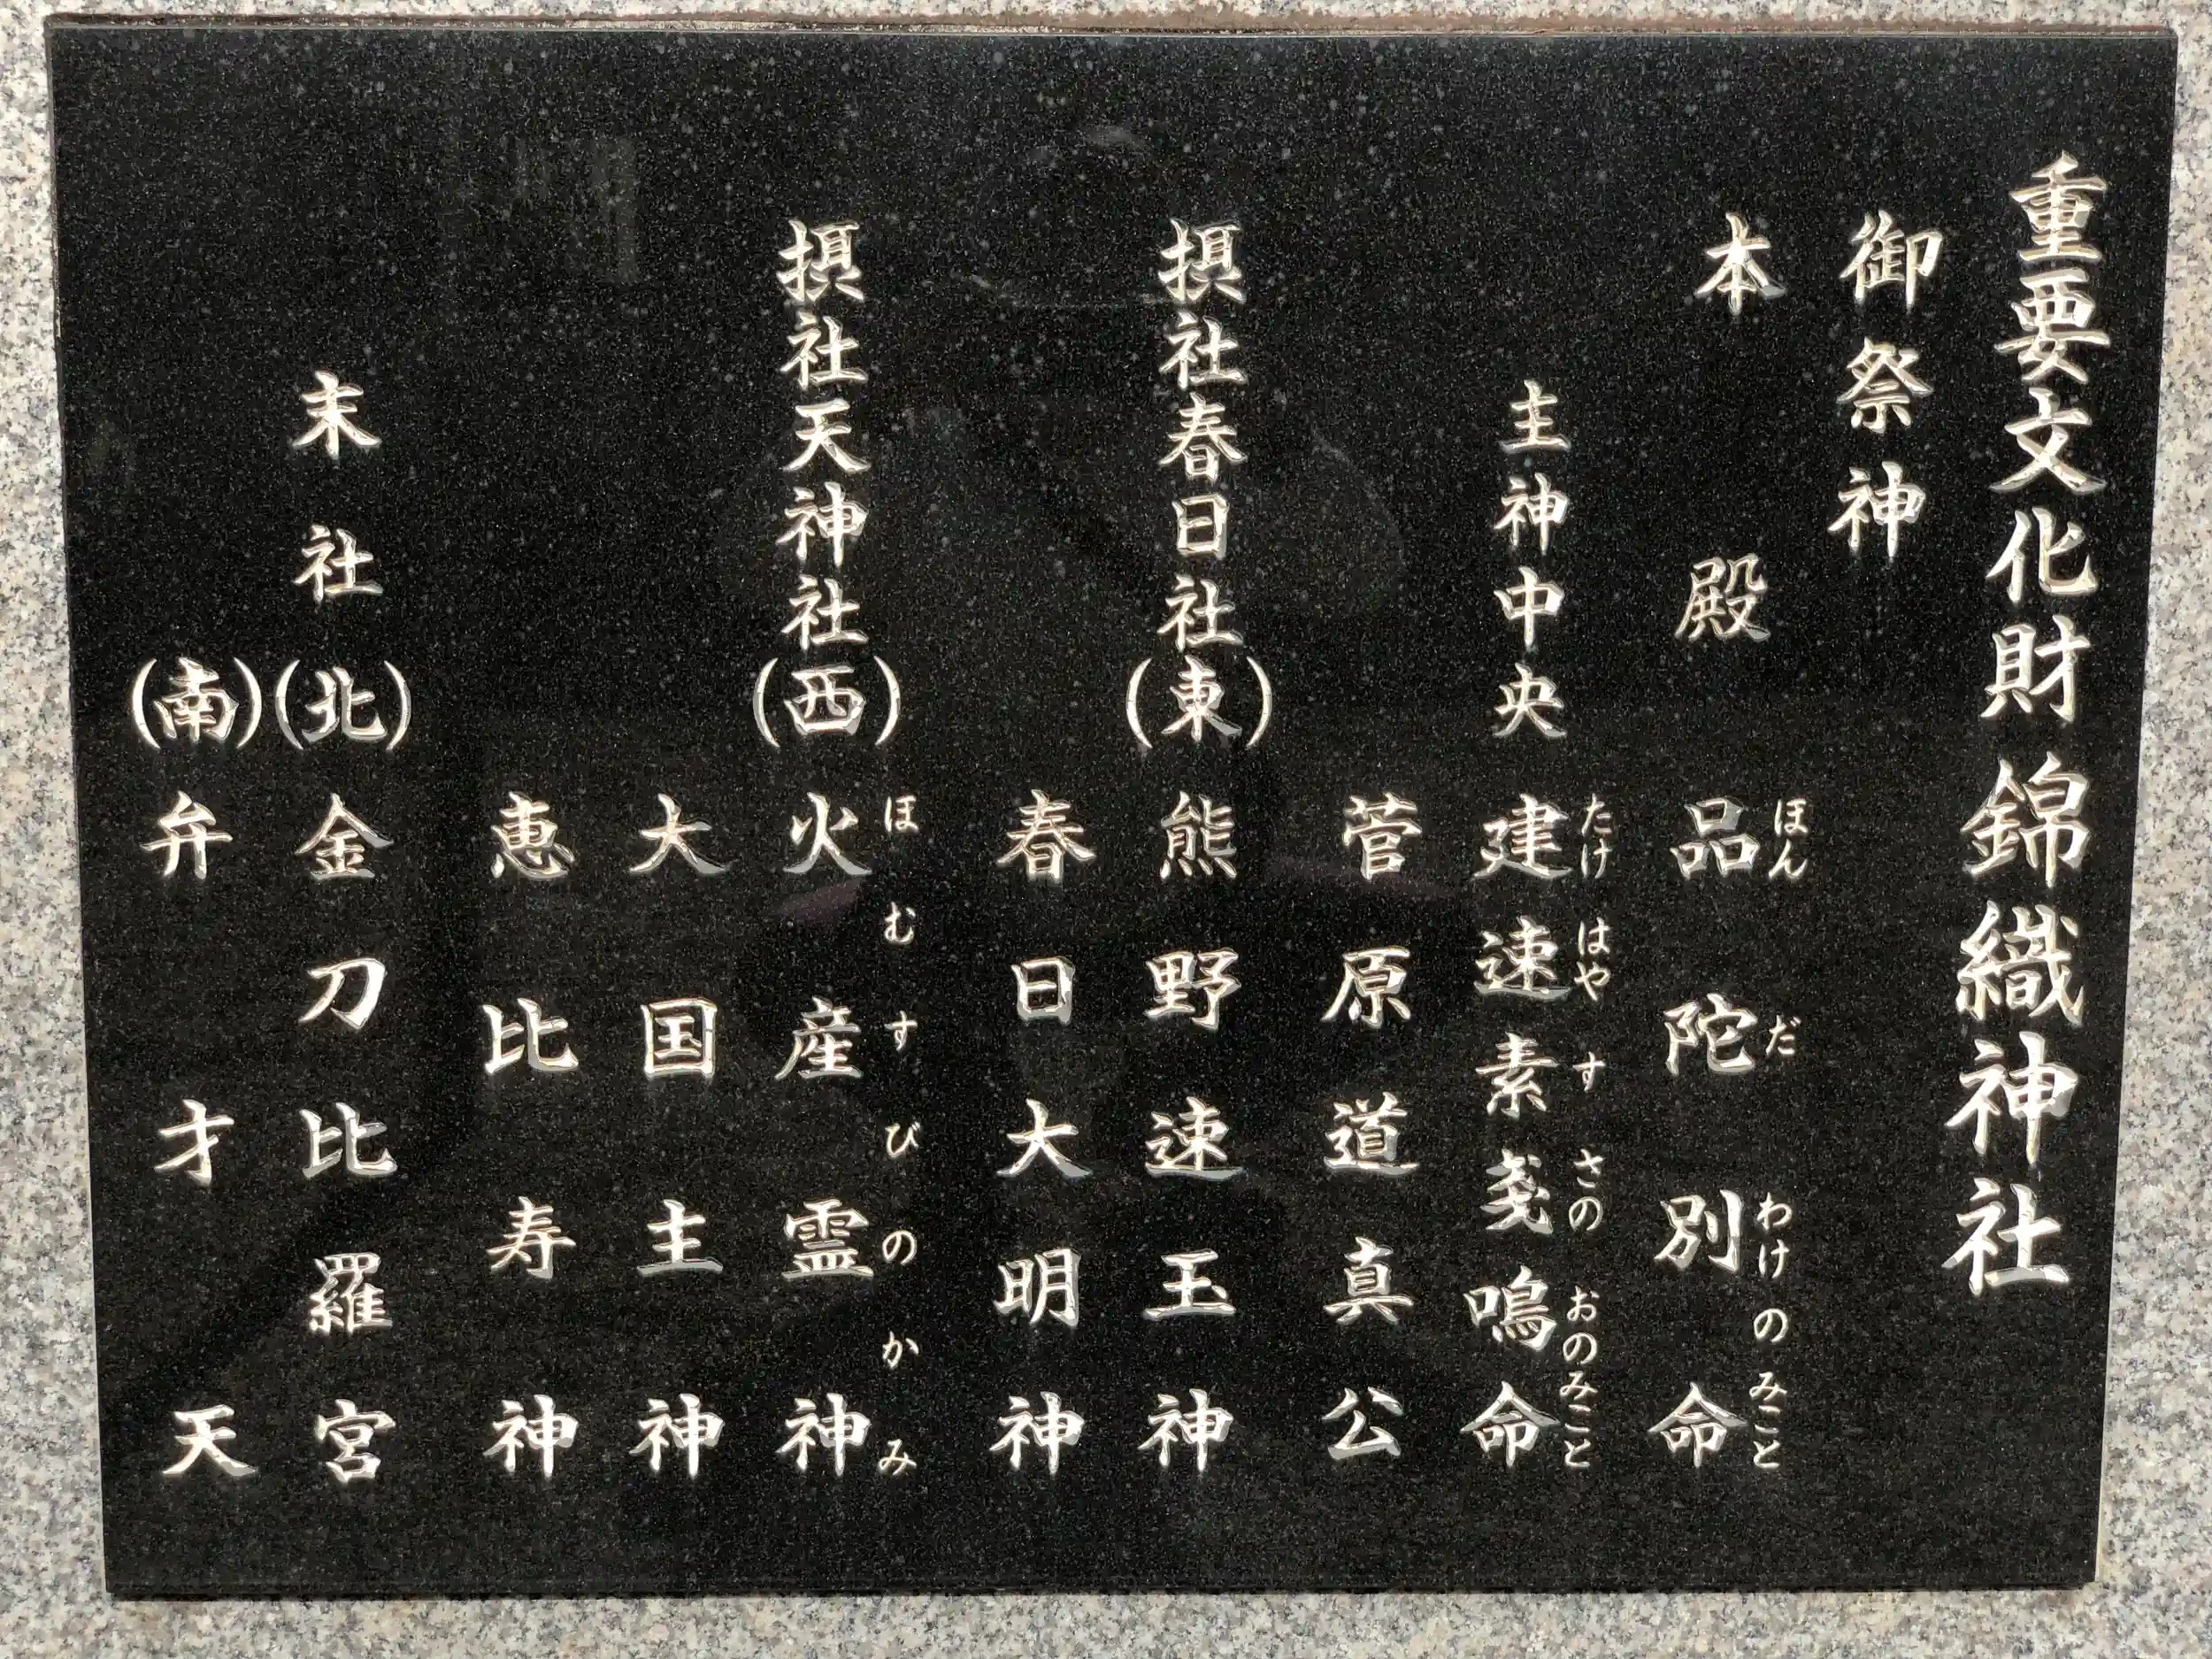 重要文化財錦織神社
御祭神
本殿 品陀別命
ほんだわけのみこと
主神中央 建速素戔嗚命
たけはやすさのおのみこと
菅原道真公
摂社春日社(東) 熊野速玉神
春日大明神
摂社天神社(西) 火産霊神
ほむすびのかみ
大国主神
恵比寿神
末社(北) 金刀比羅宮
(南) 弁才天